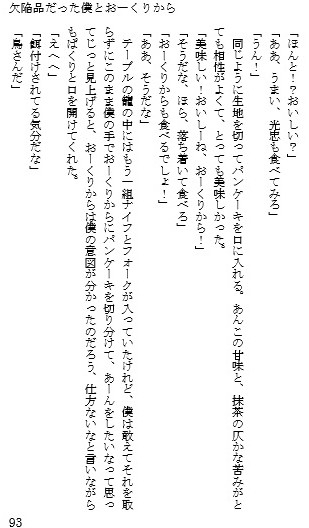 欠陥品だった僕とおーくりから
「ほんと！？おいしい？」
「ああ、うまい、光忠も食べてみろ」
「うん！」
　同じように生地を切ってパンケーキを口に入れる。あんこの甘味と、抹茶の仄かな苦みがと
ても相性がよくて、とっても美味しかった。
「美味しい！おいしーね、おーくりから！」
「そうだな、ほら、落ち着いて食べろ」
「おーくりからも食べるでしょ！」
「ああ、そうだな」
　テーブルの籠の中にはもう一組ナイフとフォークが入っていたけれど、僕は敢えてそれを取
らずにこのまま僕の手でおーくりからにパンケーキを切り分けて、あーんをしたいなって思っ
てじっと見上げると、おーくりからは僕の意図が分かったのだろう、仕方ないなと言いながら
もぱくりと口を開けてくれた。
「えへへ」
「餌付けされてる気分だな」
「鳥さんだ」
93